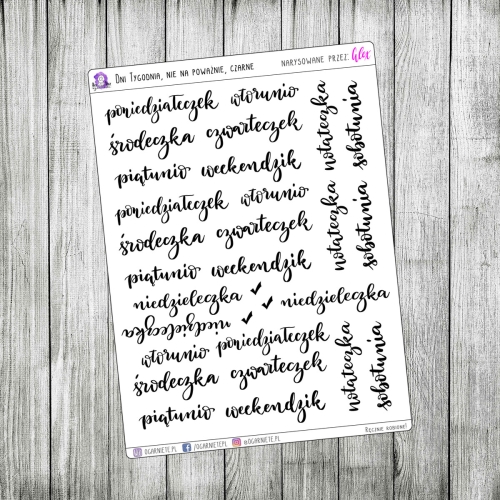 Dni Tygodnia, nie na poważnie, czarne
narysowane przez: hlex
poniedziałeczek wtorunio
środeczka czwarteczek
piątunio weekendzik
notateczka sobotunia
poniedziałeczek wtorunio
środeczka czwarteczek
piątunio weekendzik
notateczka sobotunia
niedzieleczka ✓
✓ niedzieleczka
niedzieleczka ✓
wtorunio poniedziałeczek
środeczka czwarteczek
piątunio weekendzik
notateczka sobotunia
Ręcznie robione!
@ogarnietepl /ogarnietepl @ogarniete.pl